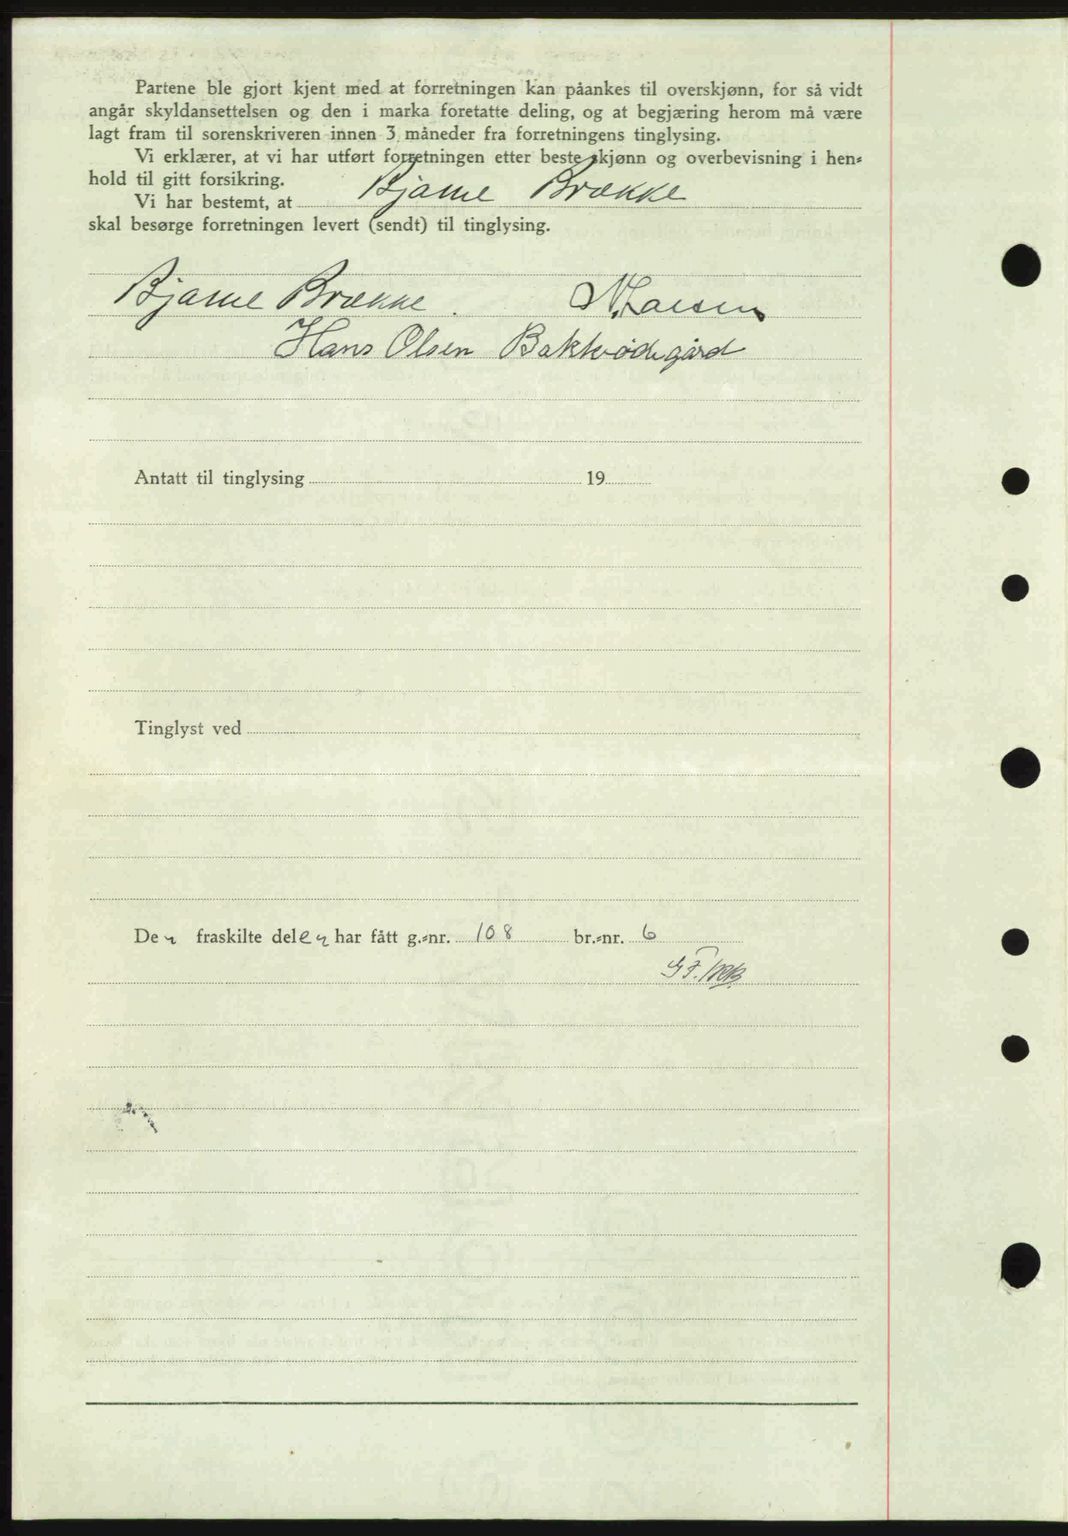 Partene ble gjort kjent med at forretningen kan påankes til overskjønn, for så vidt
angår skyldansettelsen og den i marka foretatte deling, og at begjæring herom må være
lagt fram til sorenskriveren innen 3 måneder fra forretningens tinglysing.
Vi erklærer, at vi har utført forretningen etter beste skjønn og overbevisning i hen=
hold til gitt forsikring.
Vi har bestemt, at Bjarne Brække
skal besørge forretningen levert (sendt) til tinglysing.
Bjarne Brække. N. Larsen
Hans Olsen
Antatt til tinglysing 19
Tinglyst ved
Den fraskilte delen har fått g.=nr. 108 br.=nr. 6